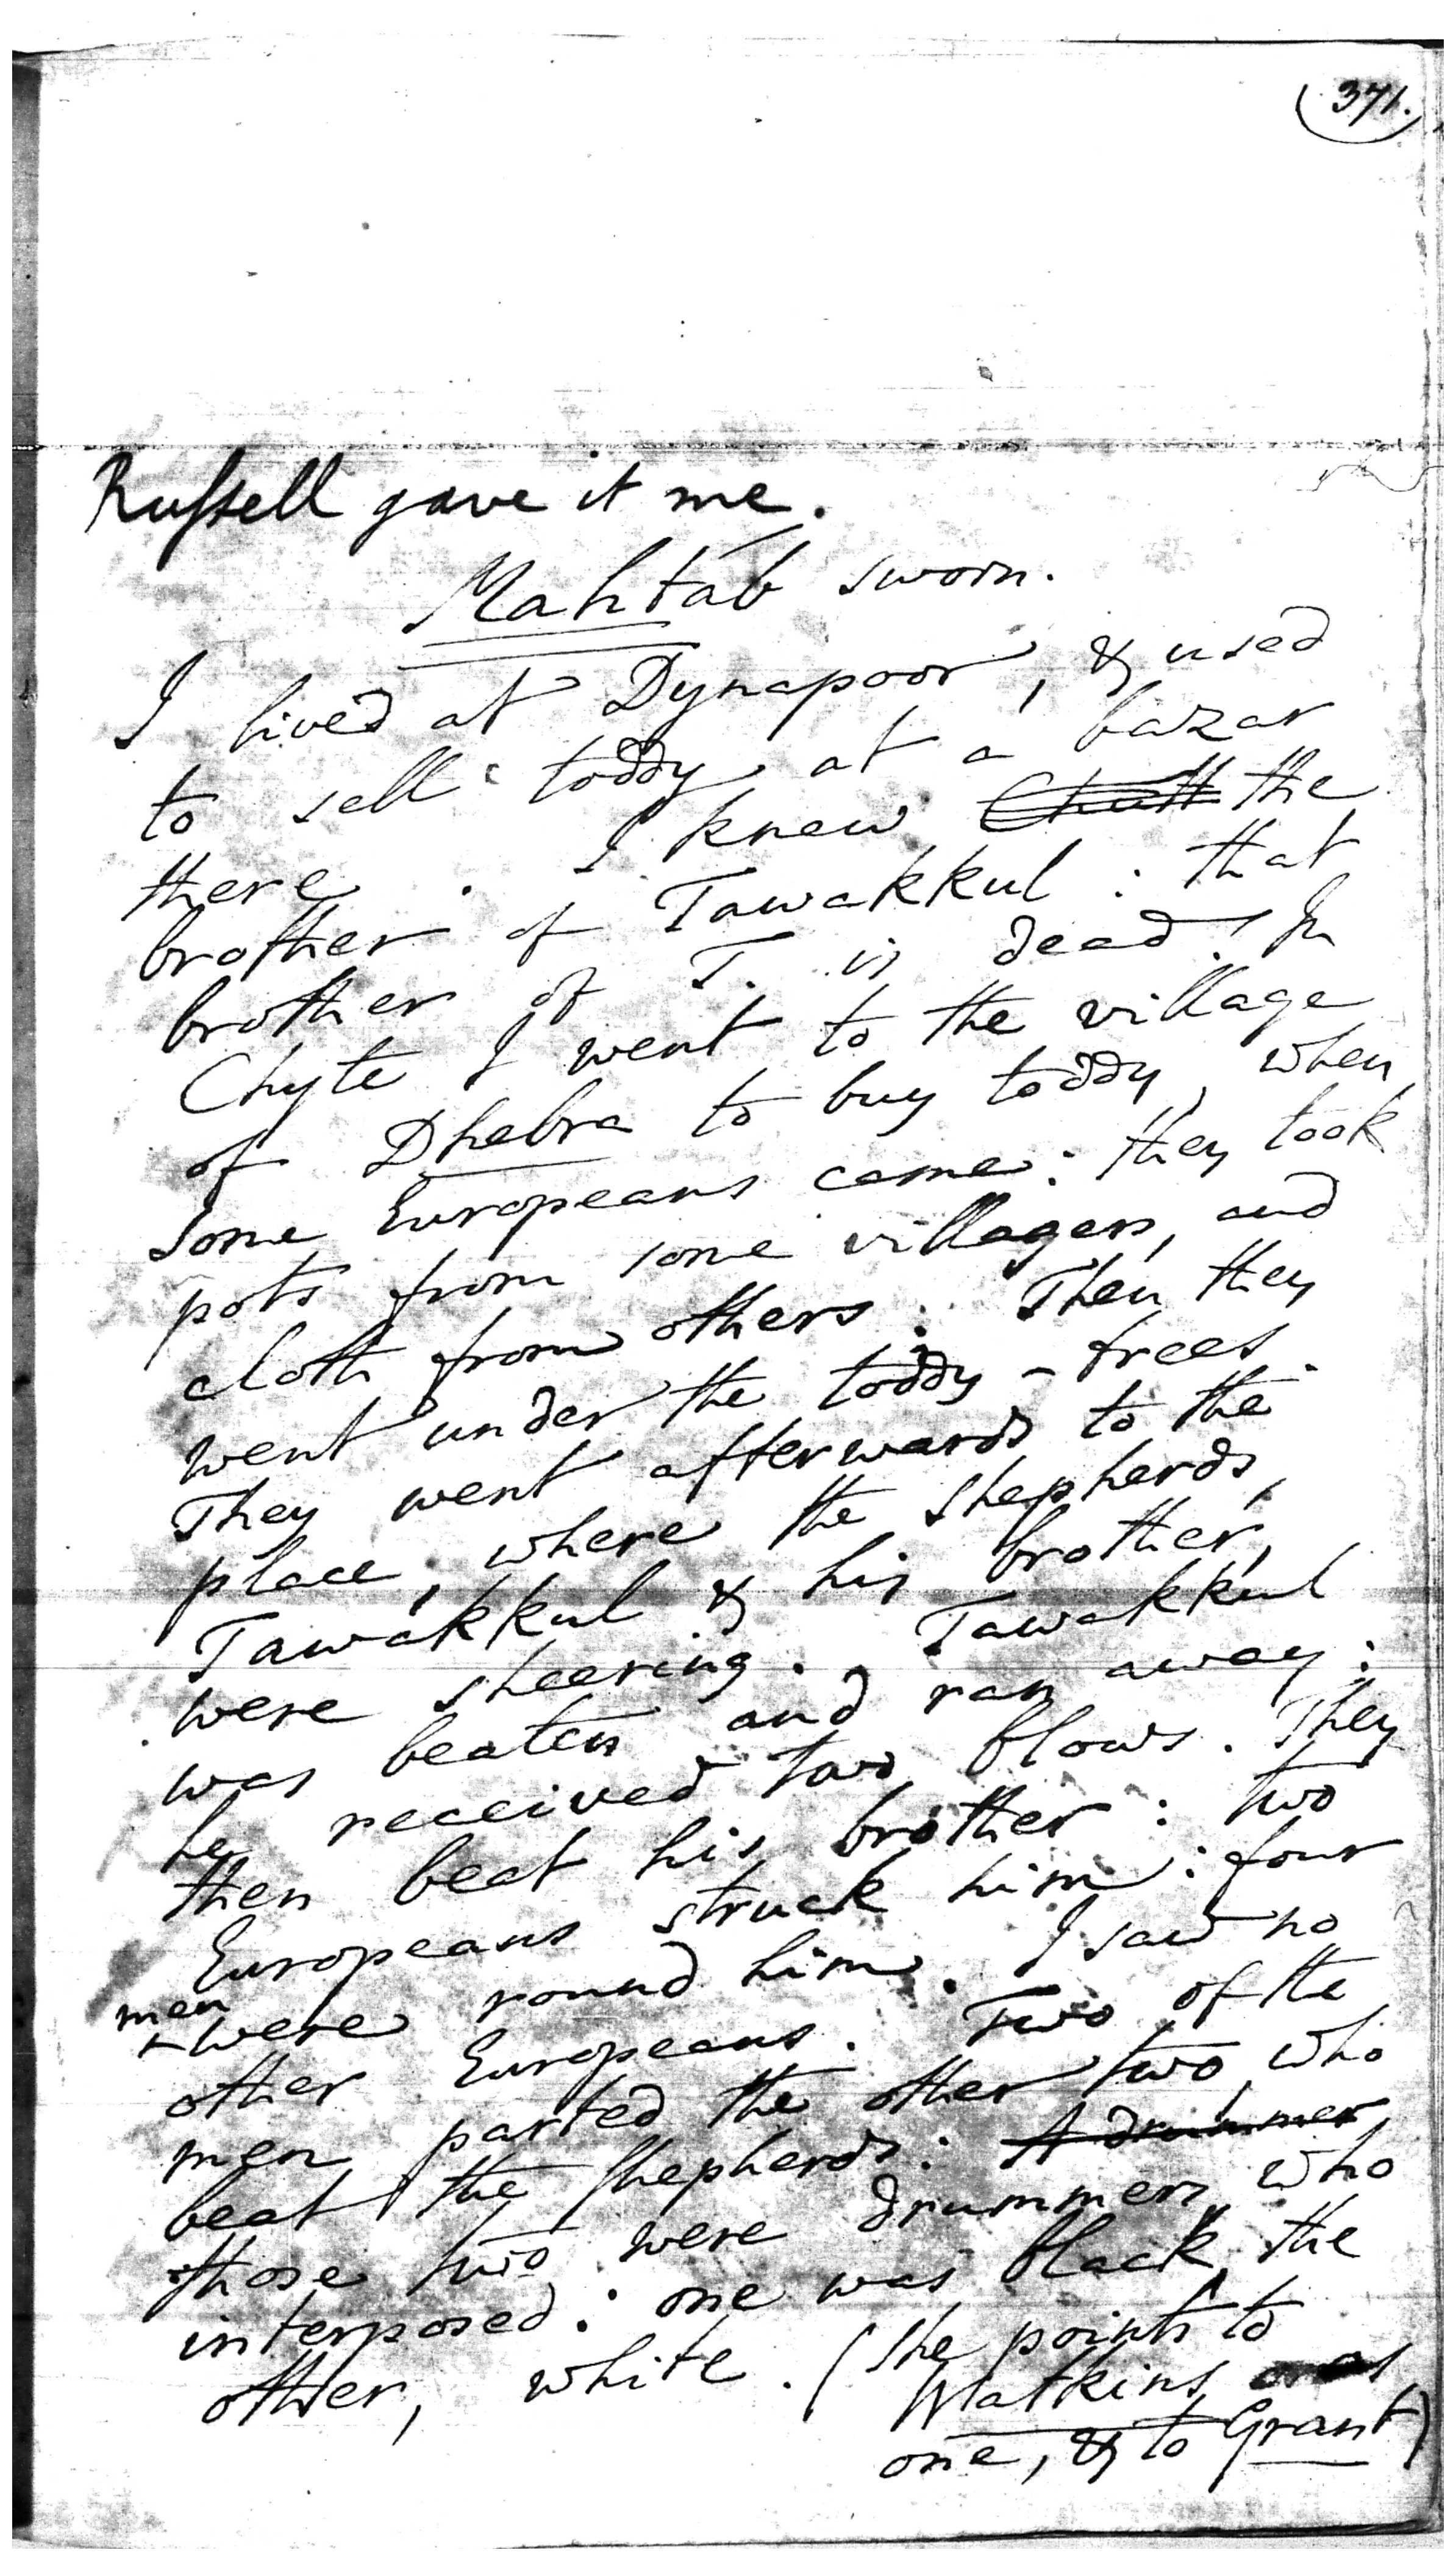 371.
Russell gave it me.
Mahtab sworn.
I lived at Dynapoor, & used
to sell toddy at a bazar
there. I knew the
brother of Tawakkul: that
brother of T. is dead. In
Chyte I went to the village
of Dhebra to buy toddy, when
some Europeans came: they took
pots from some villagers, and
cloth from others. Then they
went under the toddy-trees.
They went afterwards to the
place, where the shepherds,
Tawakkul & his brother,
were sheering. Tawakkul
was beaten and ran away:
he received two blows. They
then beat his brother: two
Europeans struck him: four
men were round him. I saw no
other Europeans. Two of the
men parted the other two who
beat the shepherds: A drummer
those two were drummers, who
interposed: one was black, the
other, white. (She points to
Watkins as
one, & to Grant)